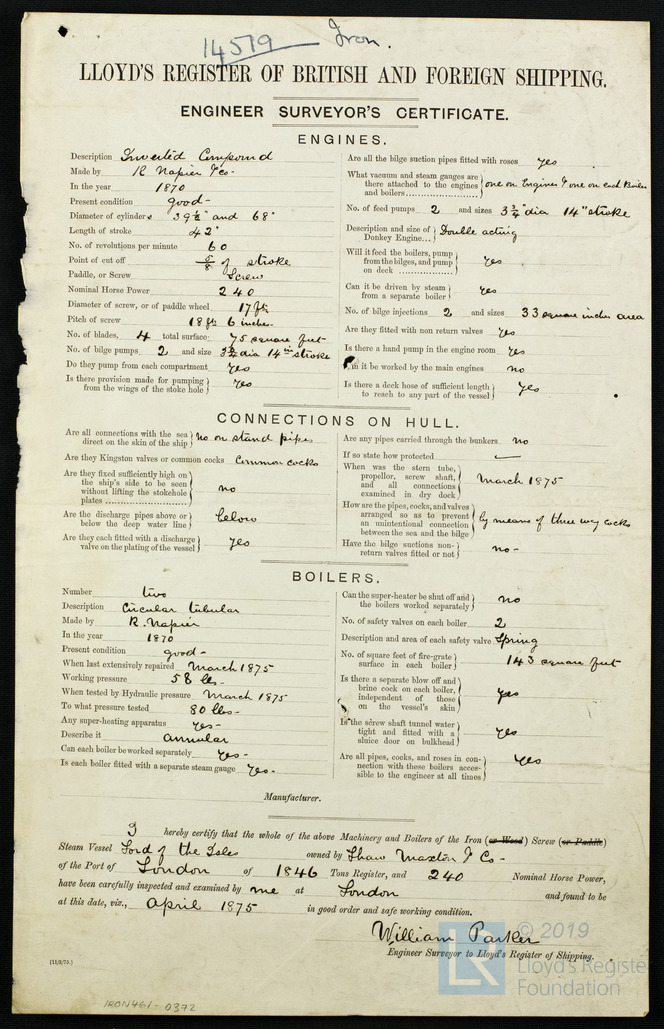 14519 Iron.
LLOYD'S REGISTER OF BRITISH AND FOREIGN SHIPPING.
ENGINEER SURVEYOR'S CERTIFICATE.
ENGINES.
Description Inverted Compound
Made by R Napier & Co-
In the year 1870
Present condition good-
Diameter of cylinders 39½" and 68"
Length of stroke 42"
No. of revolutions per minute 60
Point of cut off 5/8 of stroke
Paddle, or Screw Screw
Nominal Horse Power 240
Diameter of screw, or of paddle wheel 17 ft
Pitch of screw 18 ft 6 inches
No. of blades, 4 total surface 75 square feet
No. of bilge pumps 2 and size 3¾ dia 14 in stroke
Do they pump from each compartment yes
Is there provision made for pumping from the wings of the stoke hole yes
Are all the bilge suction pipes fitted with roses yes
What vacuum and steam gauges are
there attached to the engines one on Engines & one on each Boiler
and boilers
No. of feed pumps 2 and sizes 3¾" dia 14" stroke
Description and size of
Donkey Engine... Double acting
Will it feed the boilers, pump
from the bilges, and pump yes
on deck
Can it be driven by steam
from a separate boiler yes
No. of bilge injections 2 and sizes 33 square inches area
Are they fitted with non return valves yes
Is there a hand pump in the engine room yes
Can it be worked by the main engines no
Is there a deck hose of sufficient length
to reach to any part of the vessel yes
CONNECTIONS ON HULL.
Are all connections with the sea
direct on the skin of the ship no on stand pipes
Are they Kingston valves or common cocks Common cocks
Are they fixed sufficiently high on
the ship's side to be seen
without lifting the stokehole no
plates
Are the discharge pipes above or
below the deep water line below
Are they each fitted with a discharge
valve on the plating of the vessel yes
Are any pipes carried through the bunkers no
If so state how protected —
When was the stern tube,
propellor, screw shaft,
and all connections March 1875
examined in dry dock
How are the pipes, cocks, and valves
arranged so as to prevent
an unintentional connection by means of three way cocks
between the sea and the bilge
Have the bilge suctions non-
return valves fitted or not no-
BOILERS.
Number two
Description Circular tubular
Made by R. Napier
In the year 1870
Present condition good-
When last extensively repaired March 1875
Working pressure 58 lbs-
When tested by Hydraulic pressure March 1875
To what pressure tested 80 lbs-
Any super-heating apparatus yes-
Describe it annular
Can each boiler be worked separately yes-
Is each boiler fitted with a separate steam gauge yes-
Can the super-heater be shut off and
the boilers worked separately no
No. of safety valves on each boiler 2
Description and area of each safety valve Spring
No. of square feet of fire-grate
surface in each boiler 143 square feet
Is there a separate blow off and
brine cock on each boiler,
independent of those yes
on the vessel's skin
Is the screw shaft tunnel water
tight and fitted with a yes
sluice door on bulkhead
Are all pipes, cocks, and roses in con-
nection with these boilers acces- yes
sible to the engineer at all times
Manufacturer.
I hereby certify that the whole of the above Machinery and Boilers of the Iron (or Wood) Screw (or Paddle)
Steam Vessel Lord of the Isles owned by Shaw Maxton & Co-
of the Port of London of 1846 Tons Register, and 240 Nominal Horse Power,
have been carefully inspected and examined by me at London and found to be
at this date, viz., April 1875 in good order and safe working condition.
William Parker
Engineer Surveyor to Lloyd's Register of Shipping.
(11/3/75.)
IRON461-0372
LR © 2019
Lloyd's Register
Foundation